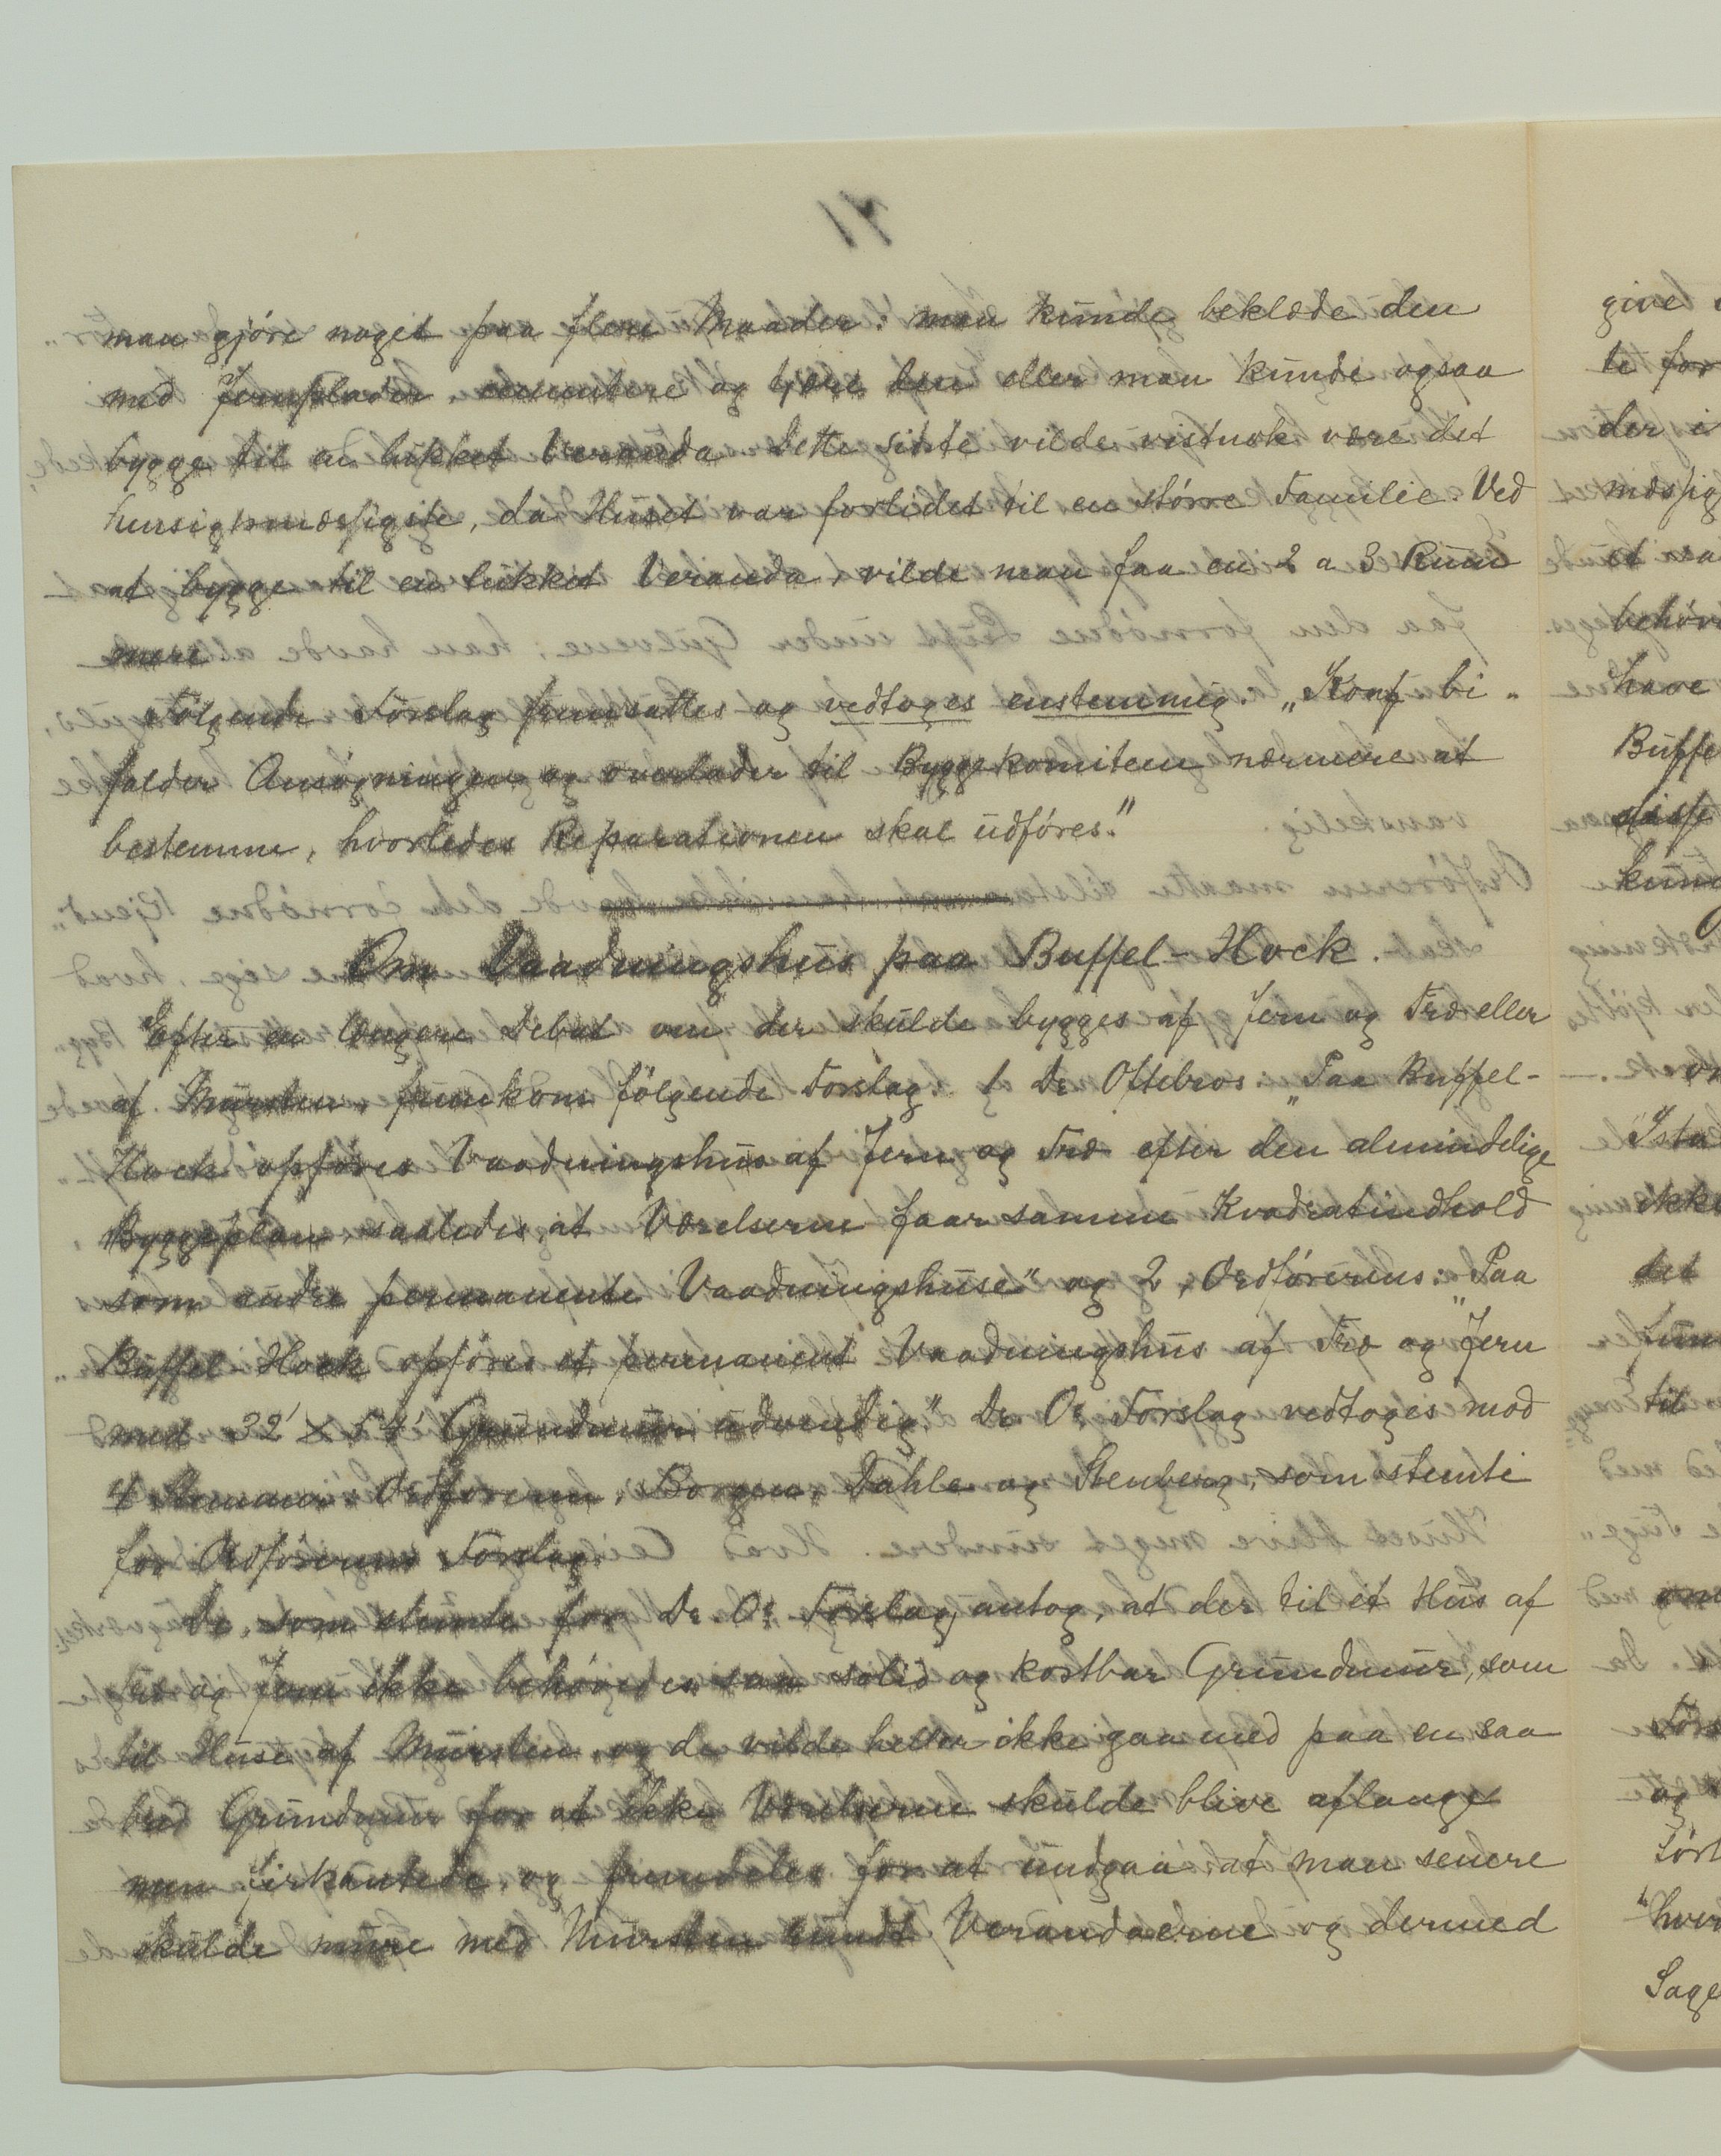 man gjöre noget paa flere Maader: man kunde beklæde den
med Jernplader, cementere og tjære den eller man kunde ogsaa
bygge til en lukket Veranda. Dette sidste vilde vistnok være det
hensigtmæssigste, da Huset var forlidet til en större Familie. Ved
at bygge til en lukket Veranda, vilde man faa en 2 a 3 Rum
mere
Fölgende Forslag fremsattes og vedtoges enstemmig. „Konf bi„
falder Ansøgningen og overlader til Byggekomiteen nærmere at
bestemme, hvorledes Reparationen skal udföres."
Om Vaaningshus paa Buffel-Hock.
Efter en længere Debat om der skulde bygges af Jern og Træ eller
af Mursten, fremkom fölgende Forslag. 1 Dr Oftebros: „Paa Buffel-
Hock opføres Vaaningshus af Jern og Træ efter den almindelige
Byggeplan saaledes, at Værelserne faar samme Kvadratindhold
som andre permanente Vaaningshuse" og 2, Ordførerens: „Paa
Buffel Hock opføres et permanent Vaaningshus af Træ og Jern
med 32' x 54' Grundmur udvendig." Dr. Os Forslag vedtoges mod
4 Stemmer: Ordføreren, Borgen, Dahle og Stenberg, som stemte
for Ordførerens Forslag.
De, som stemte for Dr. Os Forslag, antog, at der til et Hus af
Træ og Jern ikke behövedes saa solid og kostbar Grundmur, som
til Huse af Mursten, og de vilde heller ikke gaa med paa en saa
bred Grundmur for at ikke Værelserne skulde blive aflange
men firkantede, og fremdeles for at undgaa at man senere
skulde mure med Mursten rundt Verandaerne og dermed
give
te for
der i
mæssig
et saa
behöv
have
Buffe
disse
kund
ikke
det
til
og
Sage